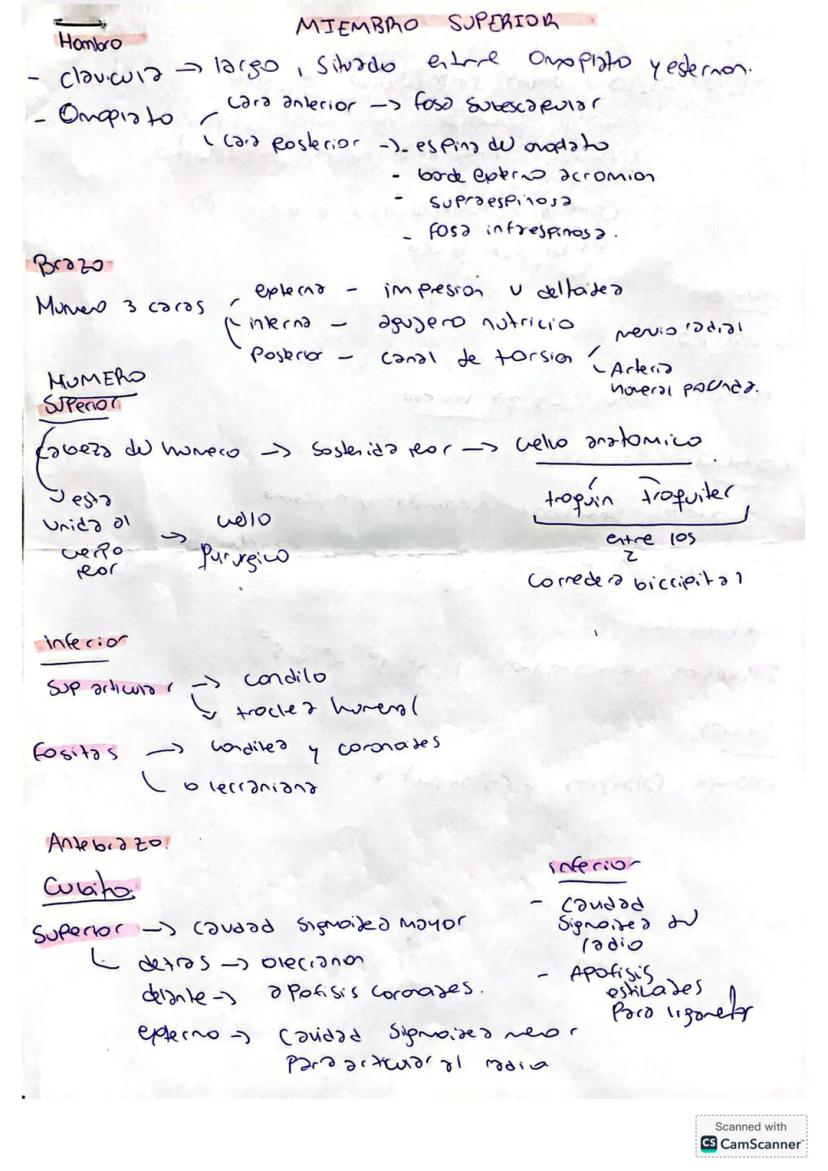 MIEMBRO SUPERIOR
Hombro
- clavicula → largo, situado entre Omoplato y esternon.
- Omoplato
cara anterior → fosa subescapular
cara posterior → - espina del omoplato
- borde externo acromion
- supraespinosa
- fosa infraespinosa.
Brazo
Humero 3 caras
externa - impresion v deltoidea
interna - agujero nutricio
Posterior - canal de torsion
nervio radial
Arteria
humeral profunda.
HUMERO
Superior
Cabeza del humero → sostenida por → cuello anatomico
troquin Troquiter
entre los
2
Corredera biccipital
esta
unida al
cuerpo
por
→ cuello
quirurgico
Inferior
Sup articular → condilo
troclea humeral
Fositas → condilea y coronoides
olecraniana
Antebrazo:
Cubito.
Superior → cavidad sigmoidea mayor
detras → olecranon
delante → apofisis coronoides.
externo → cavidad sigmoidea menor
para articular al radio
inferior
- cavidad
sigmoidea del
radio
- Apofisis
estiloides
para ligamentos
Scanned with
CS CamScanner